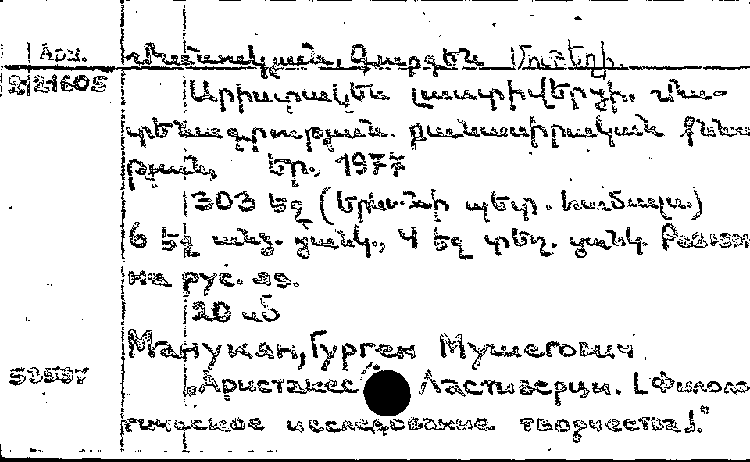 Մանուկյան, Գուրգեն Մուշեղի.
21605
Արիստակես Լաստիվերցի. Մա-
տենագրության բանասիրական քննու
թյուն. Եր., 1977
303 եջ (Երև. պետ. համալս.)
6 եջ անձ. ցանկ., 4 եջ տեղ. ցանկ Резюме
на рус. яз.
20 սմ
Манукян, Гурген Мушегович
"Аристакес Ластиверци. [Филоло
гическое исследование творчества]."